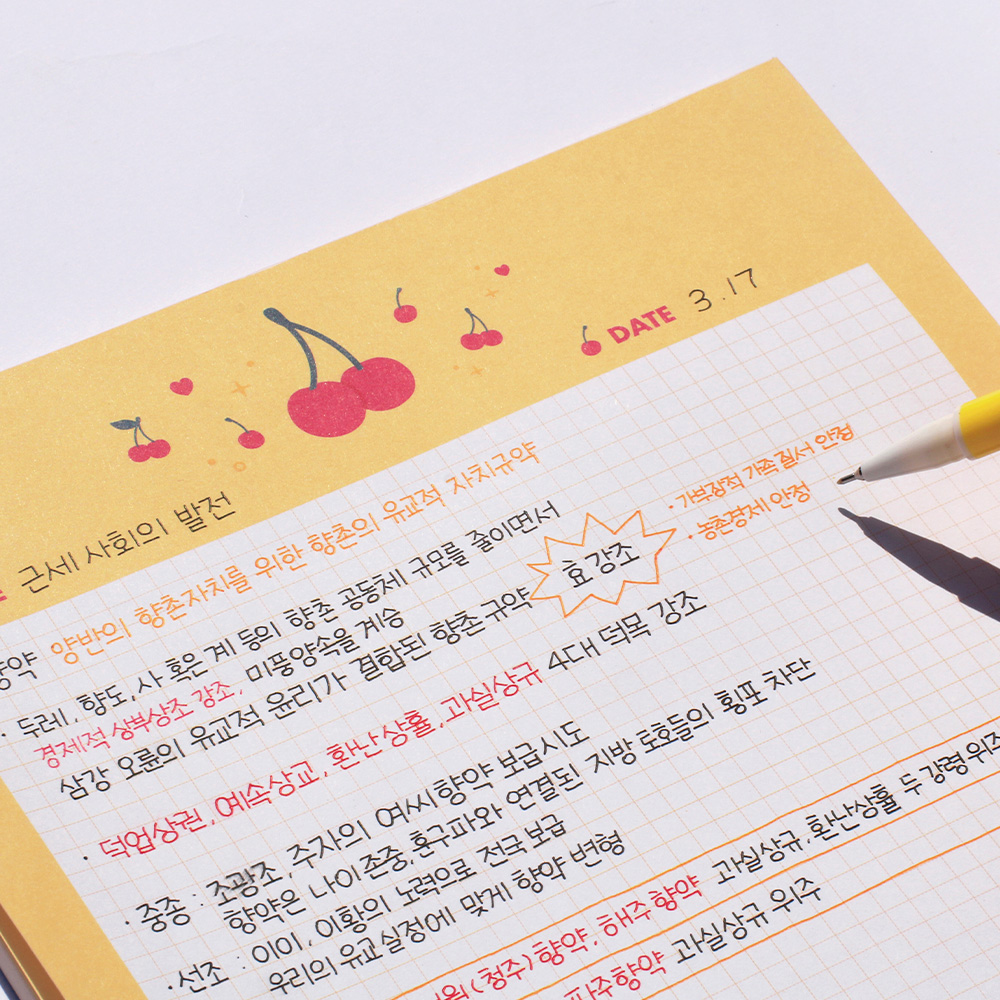 DATE 3.17
근세 사회의 발전
양반의 향촌자치를 위한 향촌의 유교적 자치규약
· 가부장적 가족 질서 안정
· 농촌경제 안정
효 강조
· 두레, 향도, 사 혹은 계 등의 향촌 공동체 규모를 줄이면서
경제적 상부상조 강조, 미풍양속을 계승
삼강 오륜의 유교적 윤리가 결합된 향촌 규약
· 덕업상권, 예속상교, 환난상휼, 과실상규 4대 덕목 강조
· 중종 : 조광조, 주자의 여씨향약 보급시도
향약은 나이존중, 훈구파와 연결된 지방 토호들의 횡포 차단
· 선조 : 이이, 이황의 노력으로 전국보급
우리의 유교실정에 맞게 향약 변형
(청주)향약, 해주향약 과실상규, 환난상휼 두 강령위주
파주향약 과실상규 위주